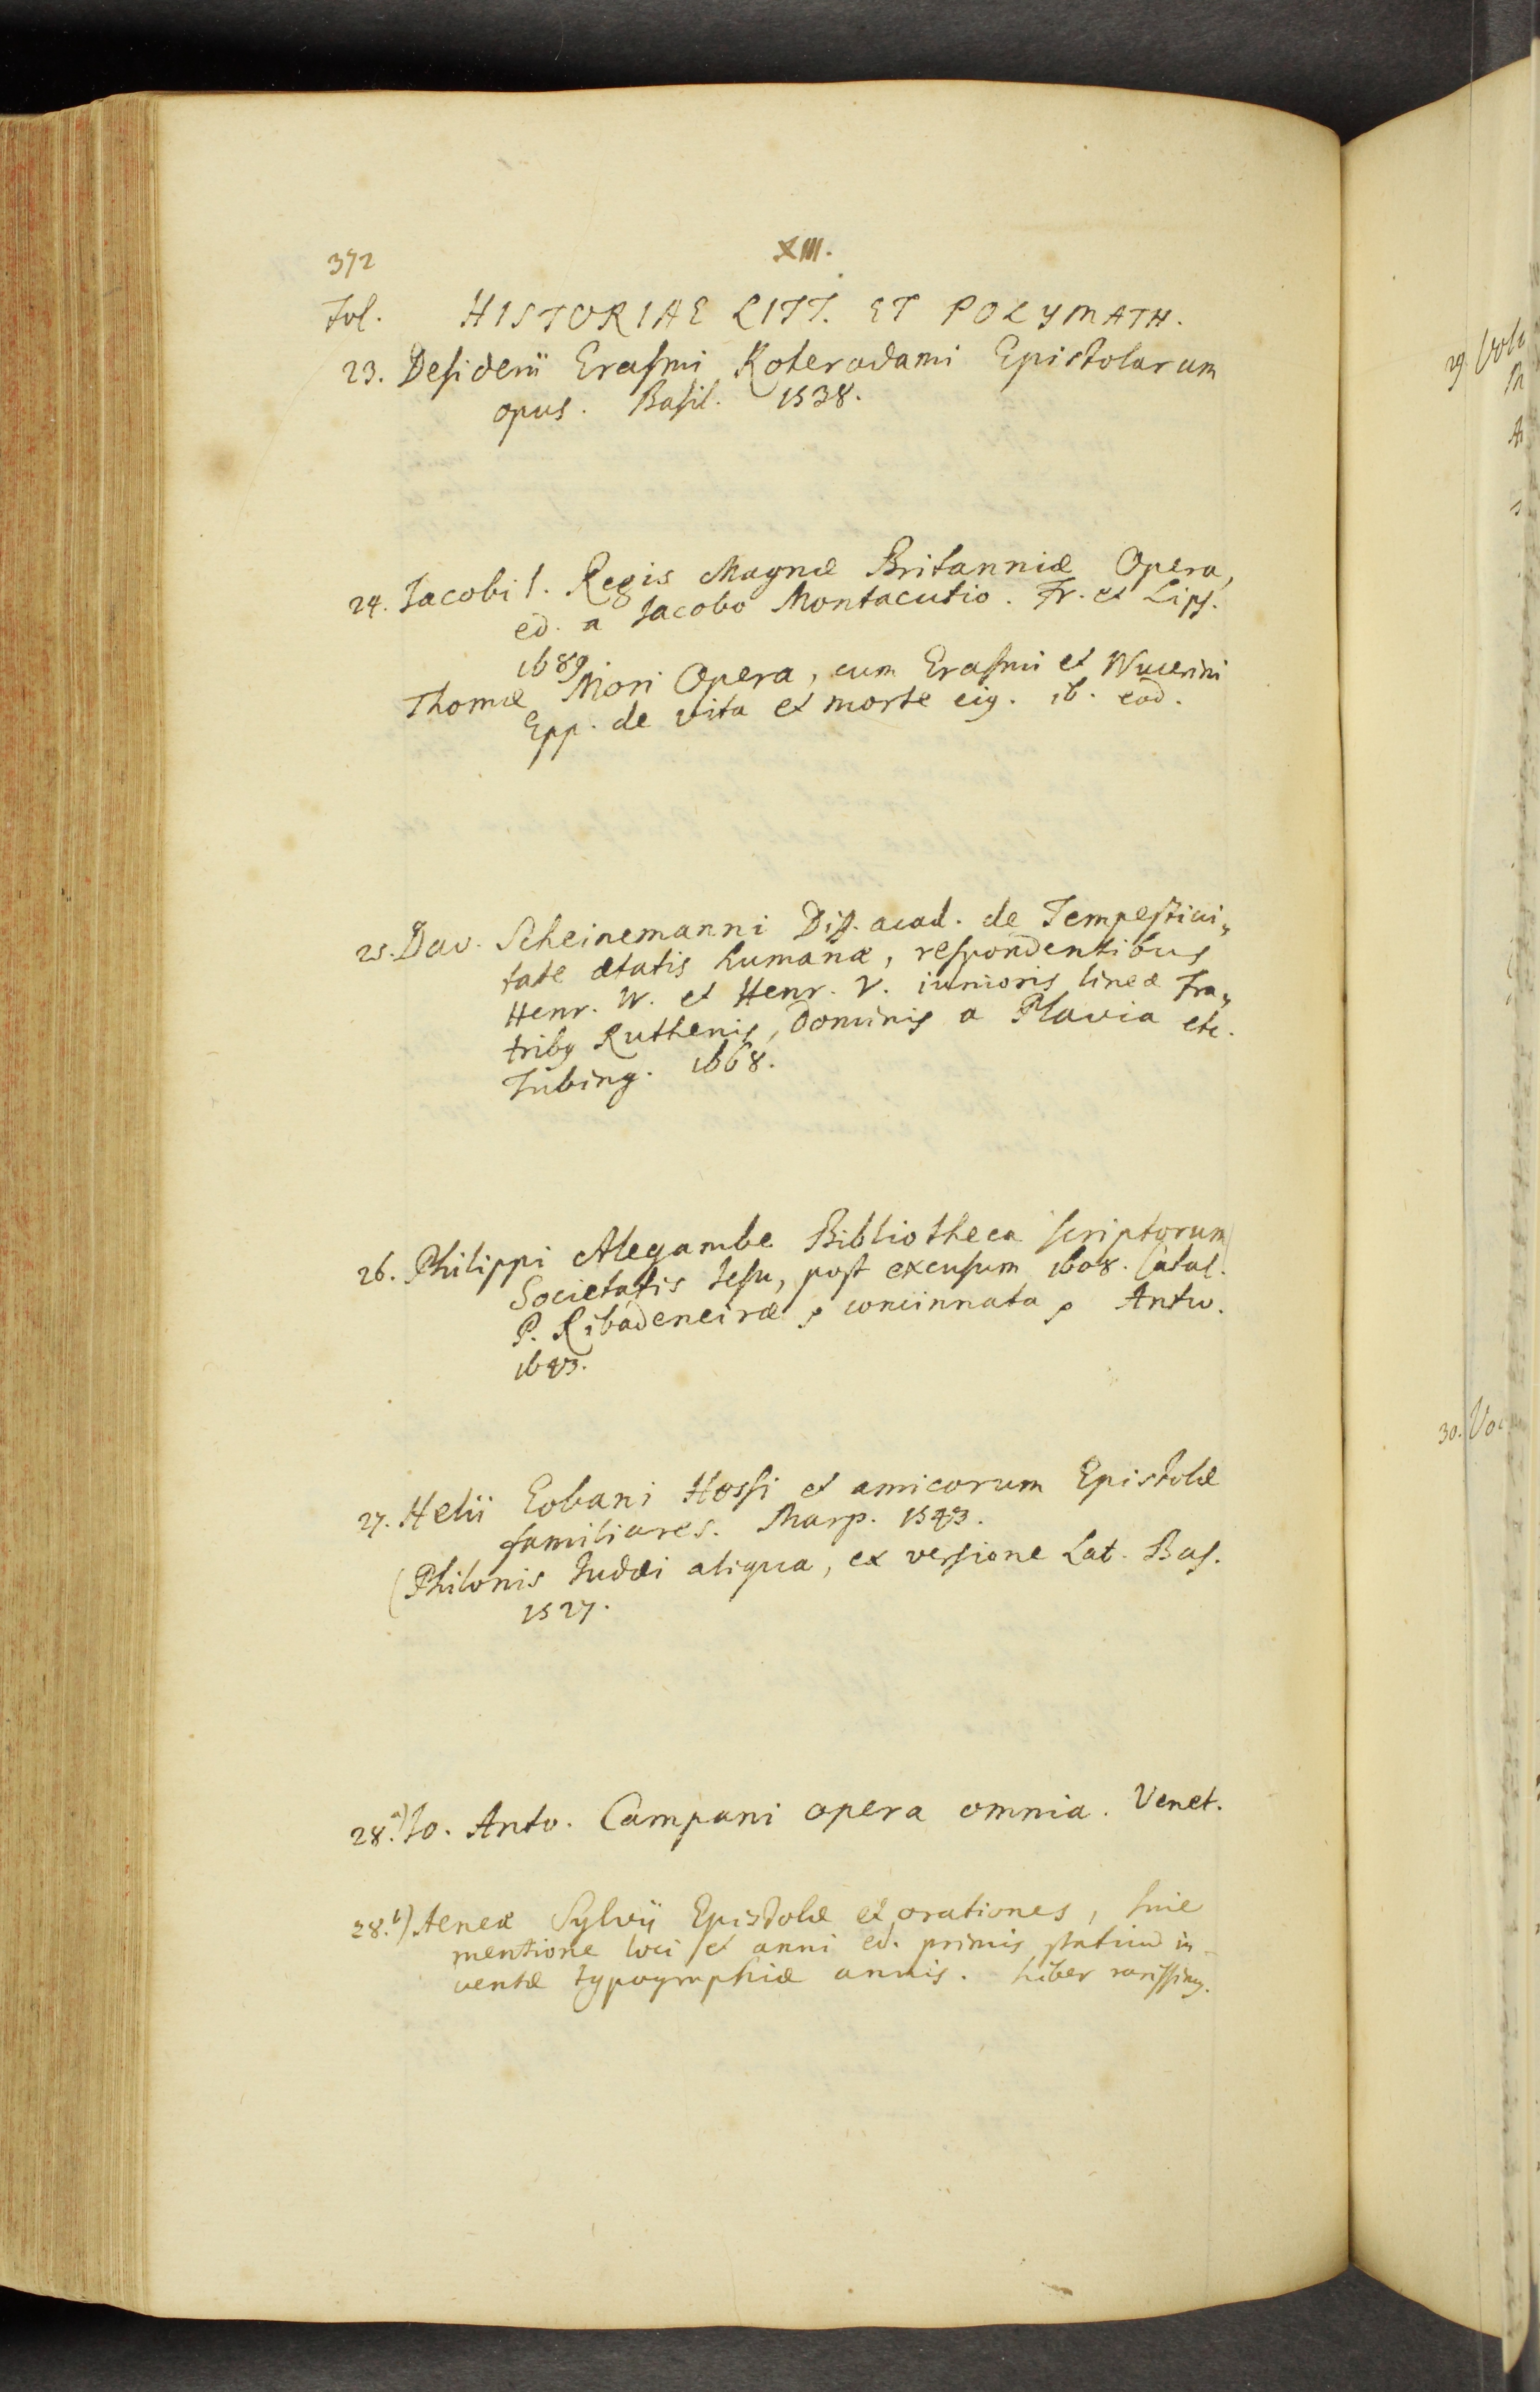 372
XIII.
Fol. HISTORIAE LITT. ET POLYMATH.
23. Desiderii Erasmi Roterodami Epistolarum
opus. Basil. 1538.
24. Jacobi I. Regis Magnæ Britanniæ Opera,
ed. a Jacobo Montacutio. Fr. et Lips.
1689.
Thomæ Mori Opera, cum Erasmi et Nucerini
Epp. de vita et morte eig. ib. eod.
25. Dav. Scheinemanni Diss. acad. de Tempestivi„
tate ætatis humanæ, respondentibus
Henr. IV. et Henr. V. iunioris lineæ Fra„
tribg Ruthenis, Dominis a Plavia etc.
Tubing. 1668.
26. Philippi Alegambe Bibliotheca scriptorum
Societatis Jesu, post excusum 1608. Catal.
P. Ribadeneiræ, concinnata, Antw.
1643.
27. Helii Eobani Hessi et amicorum Epistolæ
familiares. Marp. 1543.
(Philonis Judæi aliqua, ex versione Lat. Bas.
1527.
28.a) Jo. Anto. Campani opera omnia. Venet.
28.b) Aeneæ Sylvij Epistolæ et orationes, sine
mentione loci et anni ed. primis statim in-
ventæ typographiæ annis. Liber rarissimg.
29.
30.